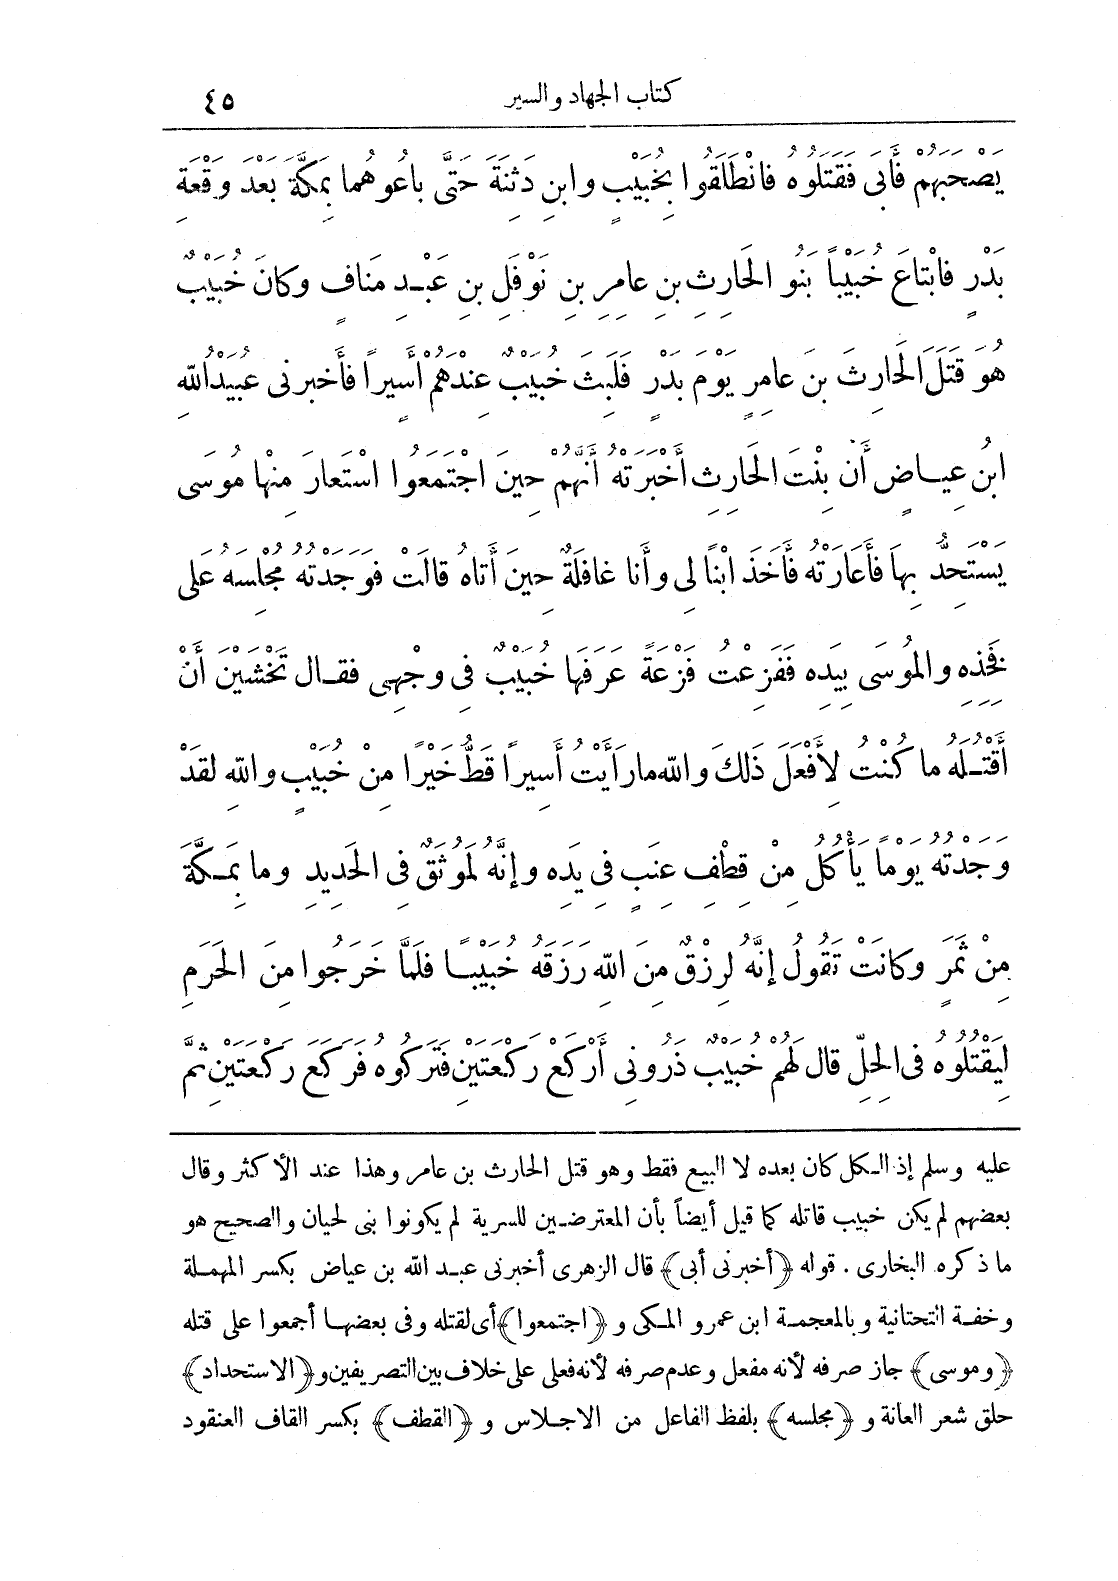 كتاب الجهاد والسير ٤٥
يَصْحَبَهُمْ فَأَبَى فَقَتَلُوهُ فَانْطَلَقُوا بِخُبَيْبٍ وابنِ دَثِنَةَ حَتَّى باعُوهُما بِمَكَّةَ بَعْدَ وَقْعَةِ
بَدْرٍ فابْتاعَ خُبَيْباً بَنُو الحَارِثِ بنِ عامِرِ بنِ نَوْفَلِ بنِ عَبْدِ مَنافٍ وكانَ خُبَيْبٌ
هُوَ قَتَلَ الحَارِثَ بنَ عامِرٍ يَوْمَ بَدْرٍ فَلَبِثَ خُبَيْبٌ عِنْدَهُمْ أَسِيراً فَأَخبرنى عُبَيْدُ اللهِ
ابنُ عِياضٍ أَنَّ بِنْتَ الحَارِثِ أَخْبَرَتْهُ أَنَّهُمْ حِينَ اجْتَمَعُوا اسْتَعارَ مِنْها مُوسَى
يَسْتَحِدُّ بِهَا فَأَعَارَتْهُ فَأَخَذَ ابْناً لِى وأَنا غافِلَةٌ حِينَ أَتاهُ قالَتْ فَوَجَدْتُهُ مُجْلِسَهُ عَلَى
فَخِذِهِ والمُوسَى بِيَدِهِ فَفَزِعْتُ فَزْعَةً عَرَفَها خُبَيْبٌ فى وجْهِى فقال تَخْشَيْنَ أَنْ
أَقْتُلَهُ ما كُنْتُ لِأَفْعَلَ ذَلكَ والله ما رَأَيْتُ أَسِيراً قَطُّ خَيْرًا مِنْ خُبَيْبٍ واللهِ لقَدْ
وَجَدْتُهُ يَوْماً يَأْكُلُ مِنْ قِطْفِ عِنَبٍ فى يَدِهِ وإنَّهُ لَمُوثَقٌ فى الحَدِيدِ وما بِمَكَّةَ
مِنْ ثَمَرٍ وكانَتْ تَقُولُ إنَّهُ لَرِزْقٌ مِنَ اللهِ رَزَقَهُ خُبَيْبًا فَلَمَّا خَرَجُوا مِنَ الحَرَمِ
لِيَقْتُلُوهُ فى الحِلِّ قالَ لَهُمْ خُبَيْبٌ ذَرُونِى أَرْكَعْ رَكْعَتَيْنِ فَتَرَكُوهُ فَرَكَعَ رَكْعَتَيْنِ ثُمَّ
عليه وسلم إذ الكل كان بعده لا البيع فقط وهو قتل الحارث بن عامر وهذا عند الأكثر وقال
بعضهم لم يكن خبيب قاتله كما قيل أيضاً بأن المعترضين للسرية لم يكونوا بنى لحيان والصحيح هو
ما ذكره البخارى . قوله ﴿أخبرنى أبى﴾ قال الزهرى أخبرنى عبد الله بن عياض بكسر المهملة
وخفة التحتانية وبالمعجمة ابن عمرو المكى و ﴿اجتمعوا﴾ أى لقتله وفى بعضها أجمعوا على قتله
﴿وموسى﴾ جاز صرفه لأنه مفعل وعدم صرفه لأنه فعلى على خلاف بين التصريفين و ﴿الاستحداد﴾
حلق شعر العانة و ﴿مجلسه﴾ بلفظ الفاعل من الاجلاس و ﴿القطف﴾ بكسر القاف العنقود